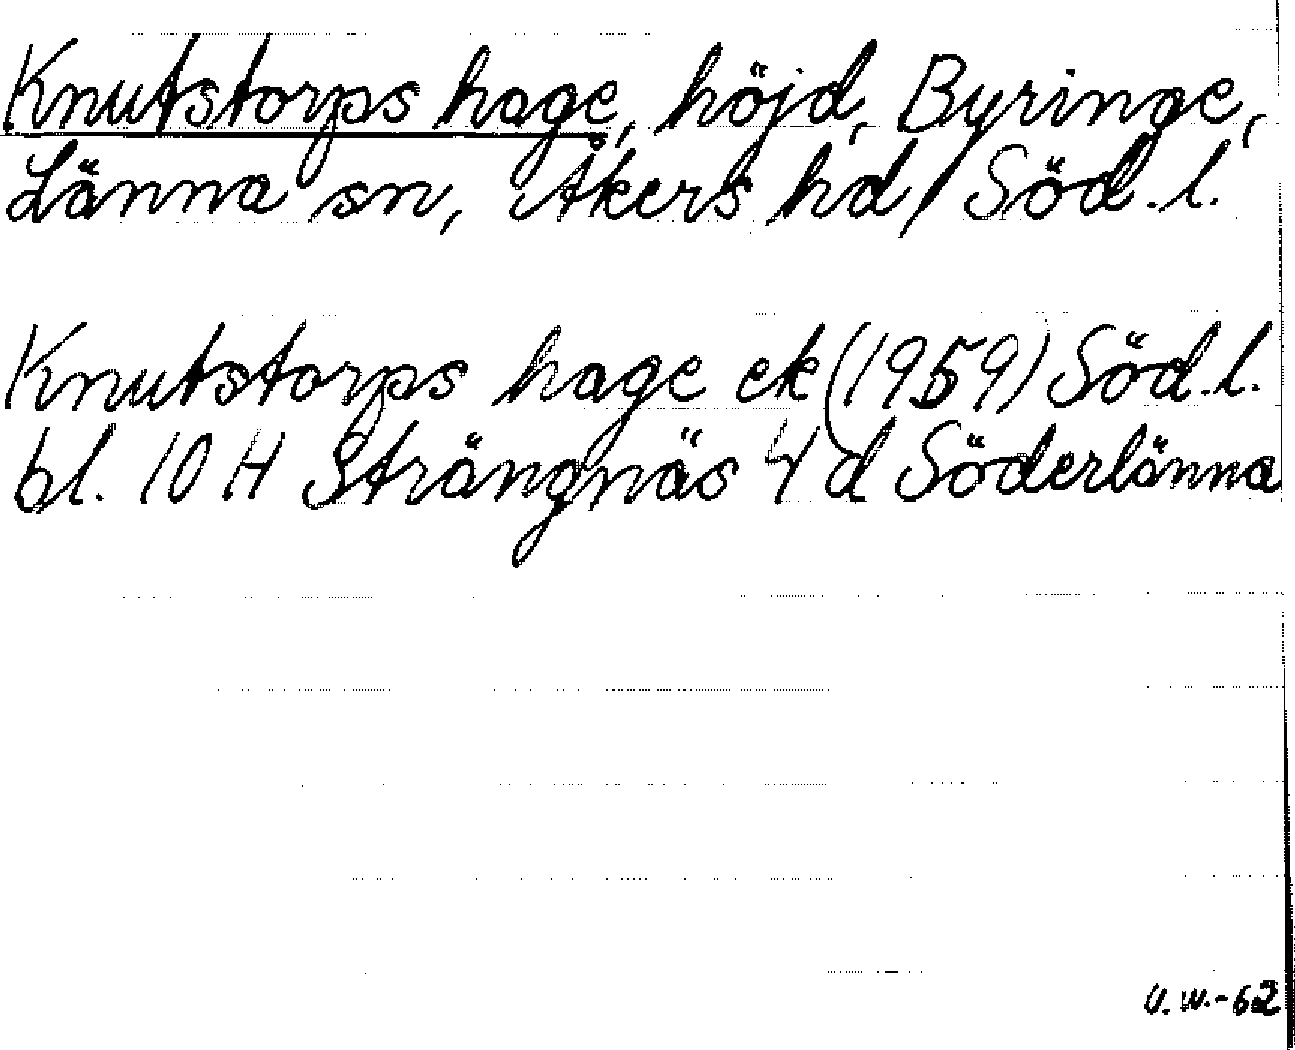 Knutstorps hage, höjd, Byringe,
Länna sn, Åkers hd, Söd.l.
Knutstorps hage ek (1959) Söd.l.
bl. 10 H Strängnäs 4 d Söderlänna
U.W.-62